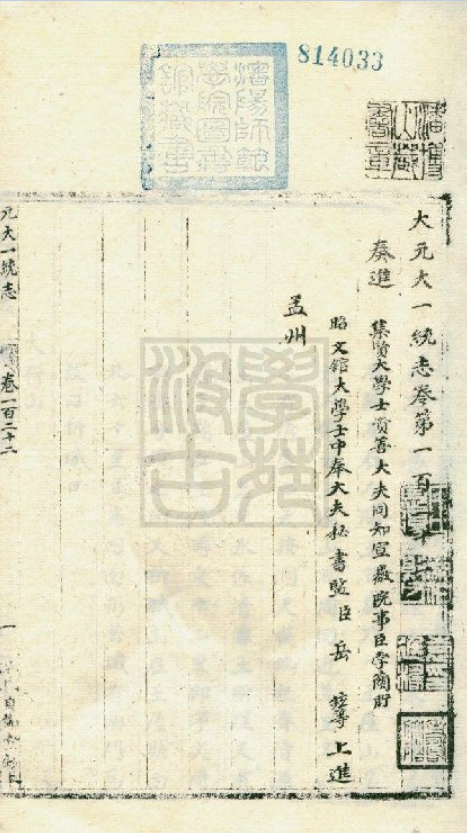 814033
瀋陽師範
學院圖書
館藏書
大元大一統志卷第一百二十二
奏進
集賢大學士資善大夫同知宣徽院事臣孛蘭肹
昭文館大學士中奉大夫秘書監臣岳鉉等上進
孟州
元大一統志 卷一百二十二 一
學苑
汲古